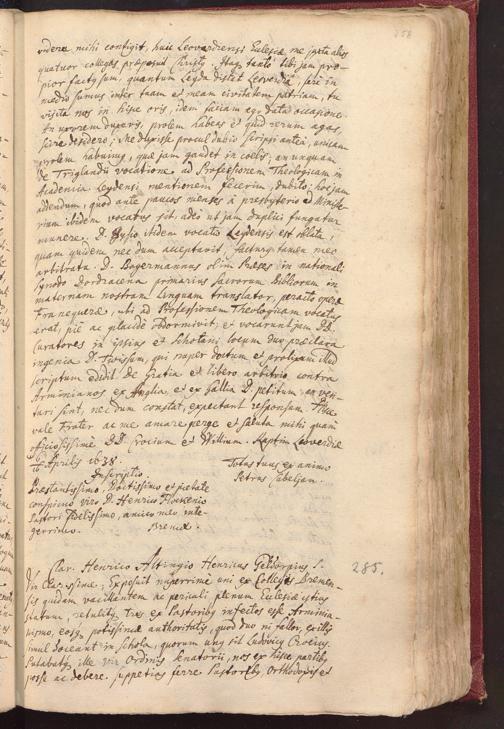 258
videre mihi contigit, huic Leovardiensi Ecclesiæ me juxta alios
quatuor collegas præposuit Christus. Hac tanti tibi jam pro
pior factus sum, quantum Leyda distet Leovardia, fere in
medio sumus inter tuam et meam civitatem patriam, tu
vise nos in hisce oris, idem faciam ego data occasione.
An uxorem duxeris, prolem habeas et quid rerum agas,
scire desidero; Me duxisse procul dubio scripsi antea, unicam
prolem habuimus, quæ jam gaudet in coelis; an unquam
de Triglandii vocatione ad Professionem Theologicam in
Academia Leydensi mentionem fecerim, dubito; hoc jam
addendum, quod ante paucos menses a presbyterio ad Ministe-
rium ibidem vocatus sit, adeo ut jam duplici fungatur
munere. D. ibidem vocatio Leydensis est oblata,
quam quidem nec dum acceptavit, facturus tamen meo
arbitratu. D. Bogermannus olim Præses in nationali
Synodo Dordracena primarius sacrorum Bibliorum in
maternam nostram linguam translator, peracto opere
Franequeræ, ubi ad Professionem Theologicam vocatus
erat, pie ac placide obdormivit, et vocarunt jam DD.
Curatores in ipsius et Schotani locum duo præclara
ingenia D. Twissum, qui nuper doctum et prolixum illud
scriptum edidit de gratia et libero arbitrio contra
Arminianos ex Anglia, et ex Gallia D. petitum, an ven-
turi sint, nec dum constat, expectant responsum.
vale frater ac me amare perge et saluta mihi quam
officiosissime DD. Crocium et Willium. Raptim Leoverdiæ
16 Aprilis 1638.
Totus tuus ex animo
Petrus Cabeljau.
Inscriptio
Præstantissimo Doctissimo et pietate
conspicuo viro D. Henrico Flockenio
Pastori fidelissimo, amico meo inte-
gerrimo.
Bremæ.
285.
Clar. Henrico Altingio Henricus Geldorpius S.
Vir Clarissime, Exposuit nuperrime uni ex Collegis Bremen-
sis quidam vacillantem ac periculi plenum Ecclesiæ istius
statum, retulitque tres ex Pastoribus infectos esse Arminia-
nismo, eosque potissimæ authoritatis, quod duo ni fallor, ex illis
simul doceant in schola, quorum unus sit Ludovicus Crocius.
Putabatque ille vir Ordinis senatorii, nos ex hisce partibus
posse ac debere suppetias ferre Pastoribus Orthodoxis et